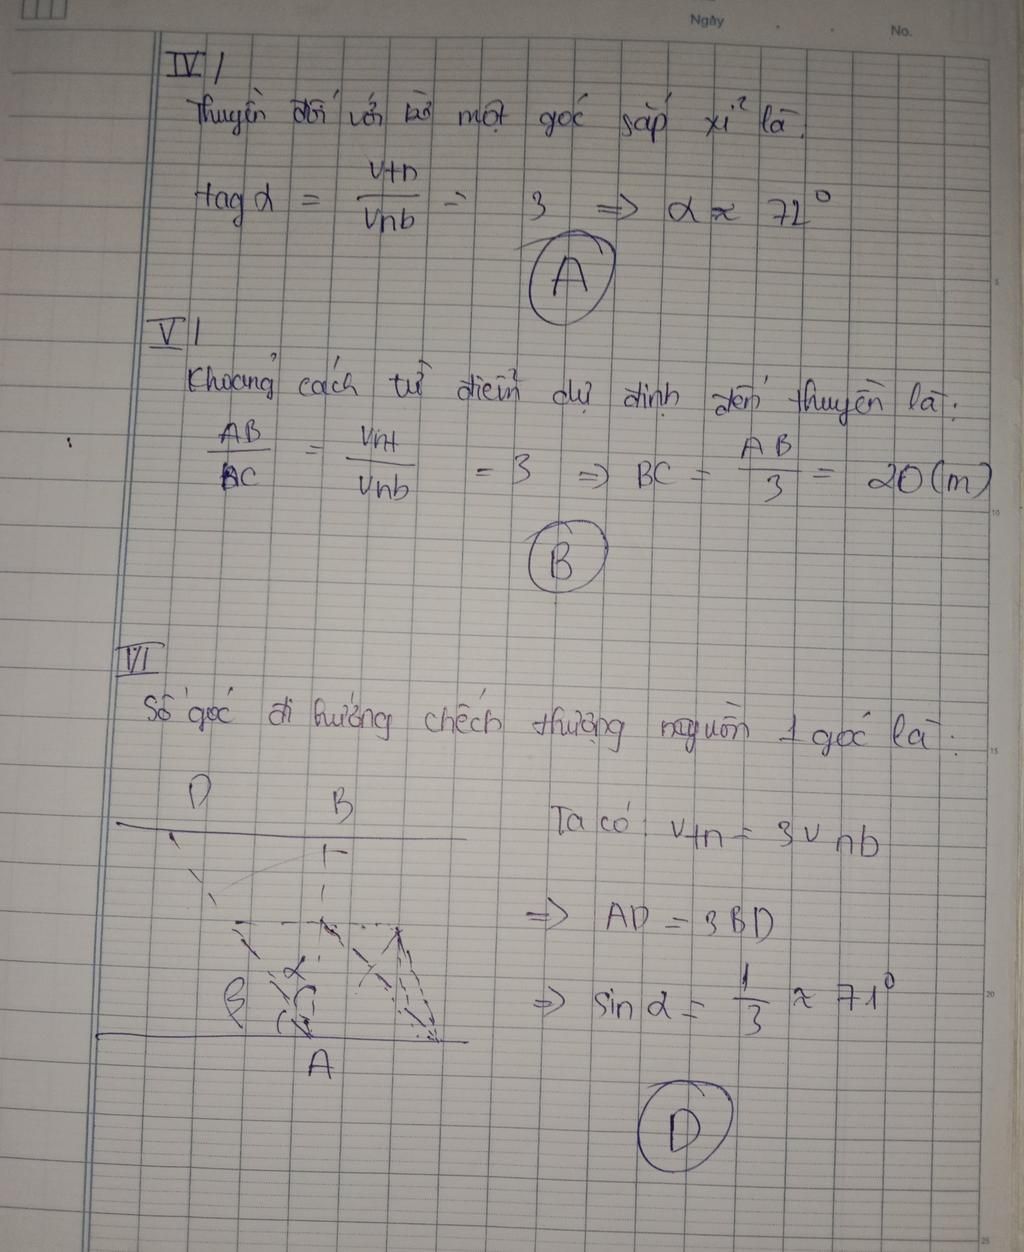 Ngày . . No.
IV/
Thuyền đối với bờ một góc sấp xỉ là:
tag α = vtn/vnb = 3 => α ≈ 72°
A
V/
Khoảng cách từ điểm dự định đến thuyền là:
AB/BC = vnt/vnb = 3 => BC = AB/3 = 20(m)
B
VI
Số góc đi hướng chếch thượng nguồn 1 góc là:
D B
Ta có: vtn = 3vnb
=> AD = 3BD
α
β
=> sin α = 1/3 ≈ 71°
A
D
5
10
15
20
25